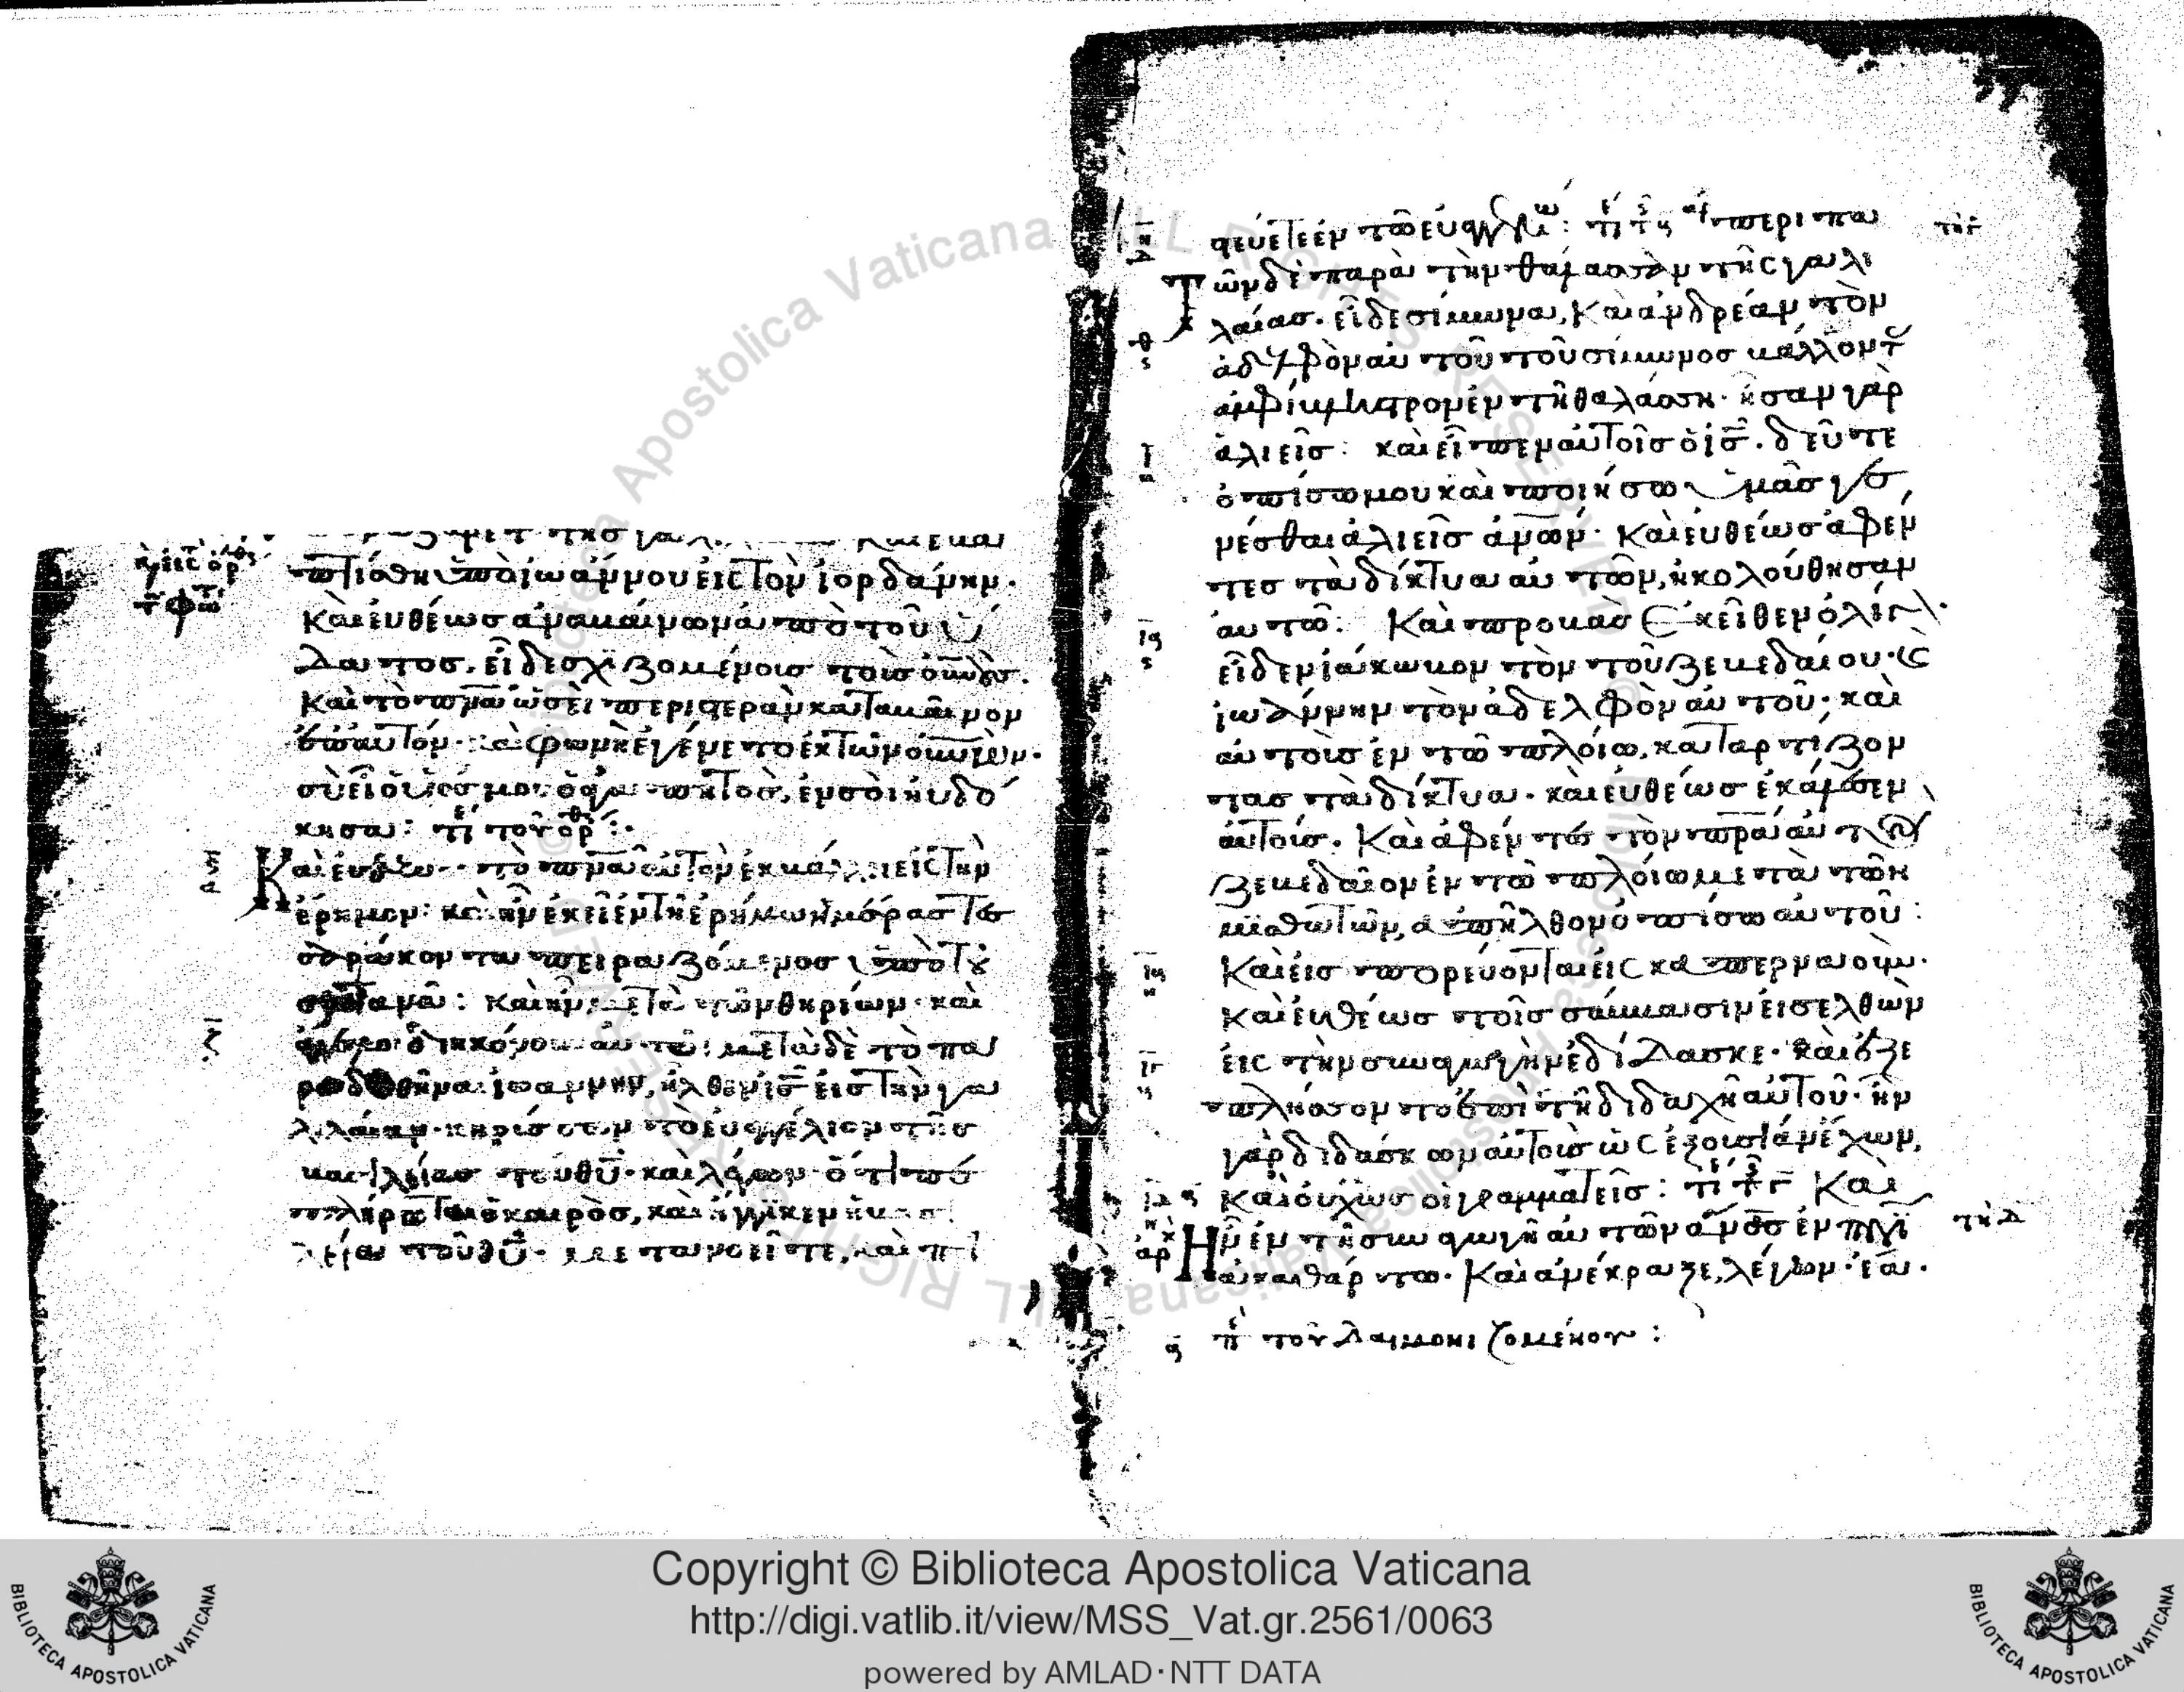 πτίσθη ὑπὸ ἰωάννου εἰς τὸν ἰορδάνην.
Καὶ εὐθέως ἀναβαίνων ἀπὸ τοῦ ὕ
δατος, εἶδε σχιζομένους τοὺς οὐνοὺς.
Καὶ τὸ πνα ὡσεὶ περιστερὰν καταβαῖνον
ἐπ αὐτόν. καὶ φωνὴ ἐγένετο ἐκ τῶν οὐνῶν.
σὺ εἶ ὁ υἱός μου ὁ ἀγαπητὸς, ἐν σοὶ ηὐδό
κησα: τε τοῦ ὀρθ:
Καὶ εὐθὺς τὸ πνα αὐτὸν ἐκβάλλει εἰς τὴν
ἔρημον: καὶ ἦν ἐκεῖ ἐν τῇ ἐρήμω ἡμέρας τεσ
σαράκοντα πειραζόμενος ὑπὸ τοῦ
σατανᾶ: καὶ ἦν μετὰ τῶν θηρίων. καὶ
διηκόνουν αὐτῶ: μετὰ δὲ τὸ πα
ραδοθῆναι ἰωάννην, ἦλθεν ὁ ις εἰς τὴν γα
λιλαίαν. κηρύσσων τὸ εὐαγγέλιον τῆς
βασιλείας τοῦ θυ. καὶ λέγων ὅτι πε
πλήρωται ὁ καιρὸς, καὶ ἤγγικεν ἡ βασι
λεία τοῦ θυ. μετανοεῖτε, καὶ πι
στεύετε ἐν τῶ εὐαγγελίω: τε τς περιπα
Τῶν δὲ παρὰ τὴν θάλασσαν τῆς γαλι
λαίας. εἶδε σίμωνα, καὶ ἀνδρέαν τὸν
ἀδελφὸν αὐτοῦ τοῦ σίμωνος βάλλοντ
ἀμφίβληστρον ἐν τῆ θαλάσση. ἦσαν γὰρ
ἁλιεῖς: καὶ εἶπεν αὐτοῖς ὁ ις. δεῦτε
ὀπίσω μου καὶ ποιήσω ὑμᾶς γε
νέσθαι ἁλιεῖς ἀνων. Καὶ εὐθέως ἀφέν
τες τὰ δίκτυα αὐτῶν, ἠκολούθησαν
αὐτῶ: Καὶ προβὰς ἐκεῖθεν ὀλίγ
εἶδεν ἰάκωβον τὸν τοῦ ζεβεδαίου. καὶ
ἰωάννην τὸν ἀδελφὸν αὐτοῦ. καὶ
αὐτοὺς ἐν τῶ πλοίω, καταρτίζον
τας τὰ δίκτυα. καὶ εὐθέως ἐκάλεσεν
αὐτούς. Καὶ ἀφέντες τὸν πρα αὐτῶν
ζεβεδαῖον ἐν τῶ πλοίω μετὰ τῶν
μισθωτῶν, ἀπῆλθον ὀπίσω αὐτοῦ:
Καὶ εἰσπορεύονται εἰς καπερναούμ.
Καὶ εὐθέως τοῖς σάββασιν εἰσελθὼν
εἰς τὴν συναγωγὴν ἐδίδασκε. καὶ ἐξε
πλήσσοντο ἐπὶ τῆ διδαχῆ αὐτοῦ. ἦν
γὰρ διδάσκων αὐτοὺς ὡς ἐξουσίαν ἔχων,
καὶ οὐχ ὡς οἱ γραμματεῖς: τε τς γ Καὶ
Ην ἐν τῆ συναγωγῆ αὐτῶν ανος ἐν πνι
ἀκαθάρτω. Καὶ ἀνέκραξε, λέγων. ἔα.
πε τοῦ δαιμονιζομένου:
Copyright © Biblioteca Apostolica Vaticana
http://digi.vatlib.it/view/MSS_Vat.gr.2561/0063
powered by AMLAD·NTT DATA
BIBLIOTECA APOSTOLICA VATICANA
BIBLIOTECA APOSTOLICA VATICANA